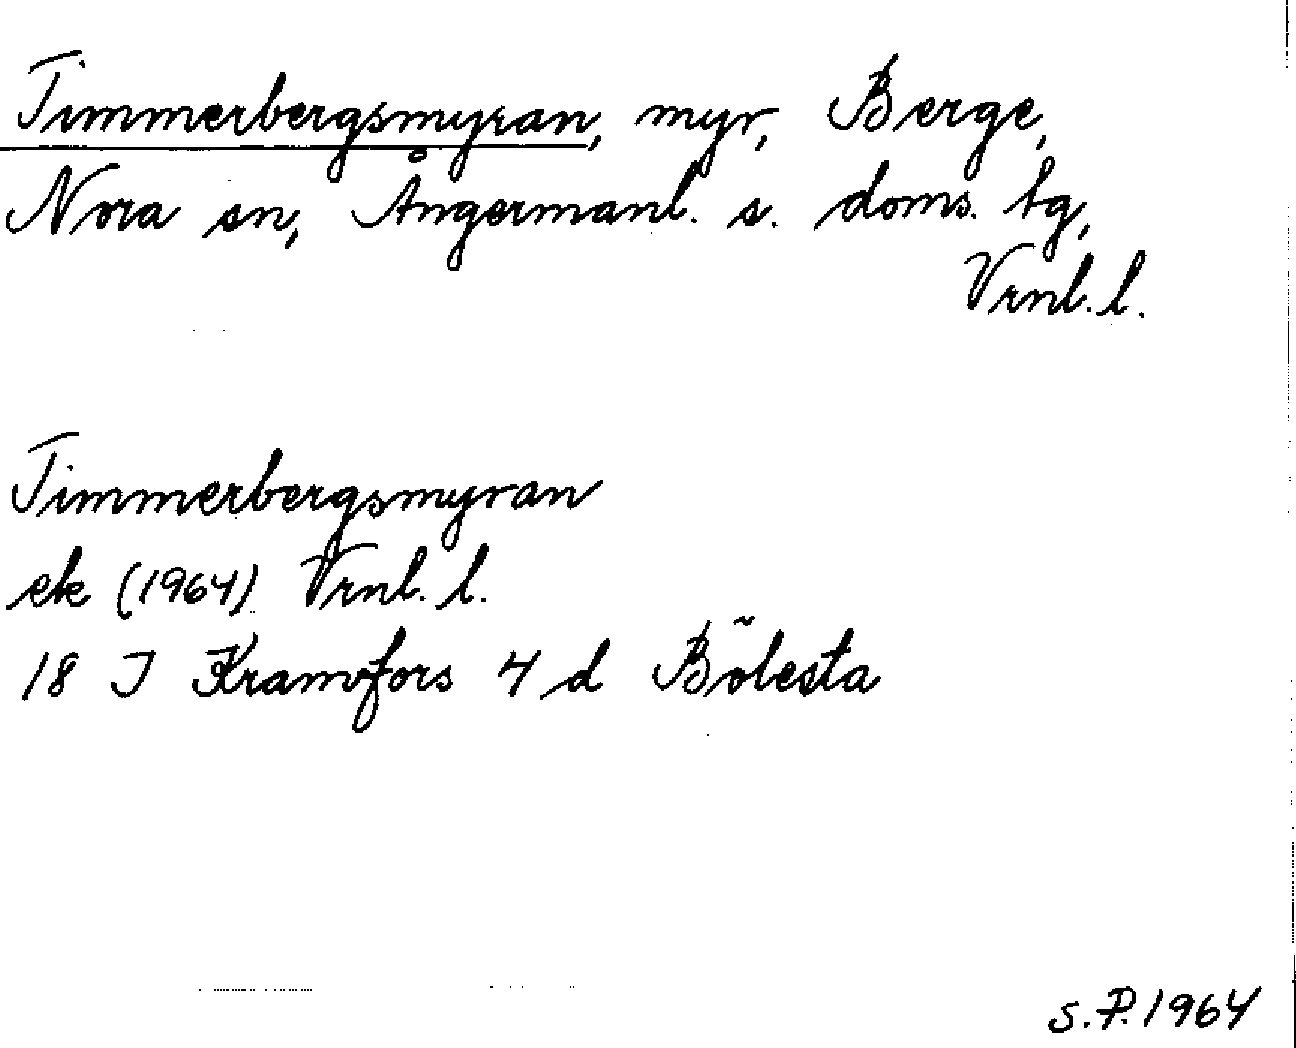 Timmerbergsmyran, myr, Berge,
Nora sn, Ångermanl. s. doms. tg,
Vrnl. l.
Timmerbergsmyran
ek (1964) Vrnl. l.
18 J Kramfors 4 d Bölesta
S.P. 1964